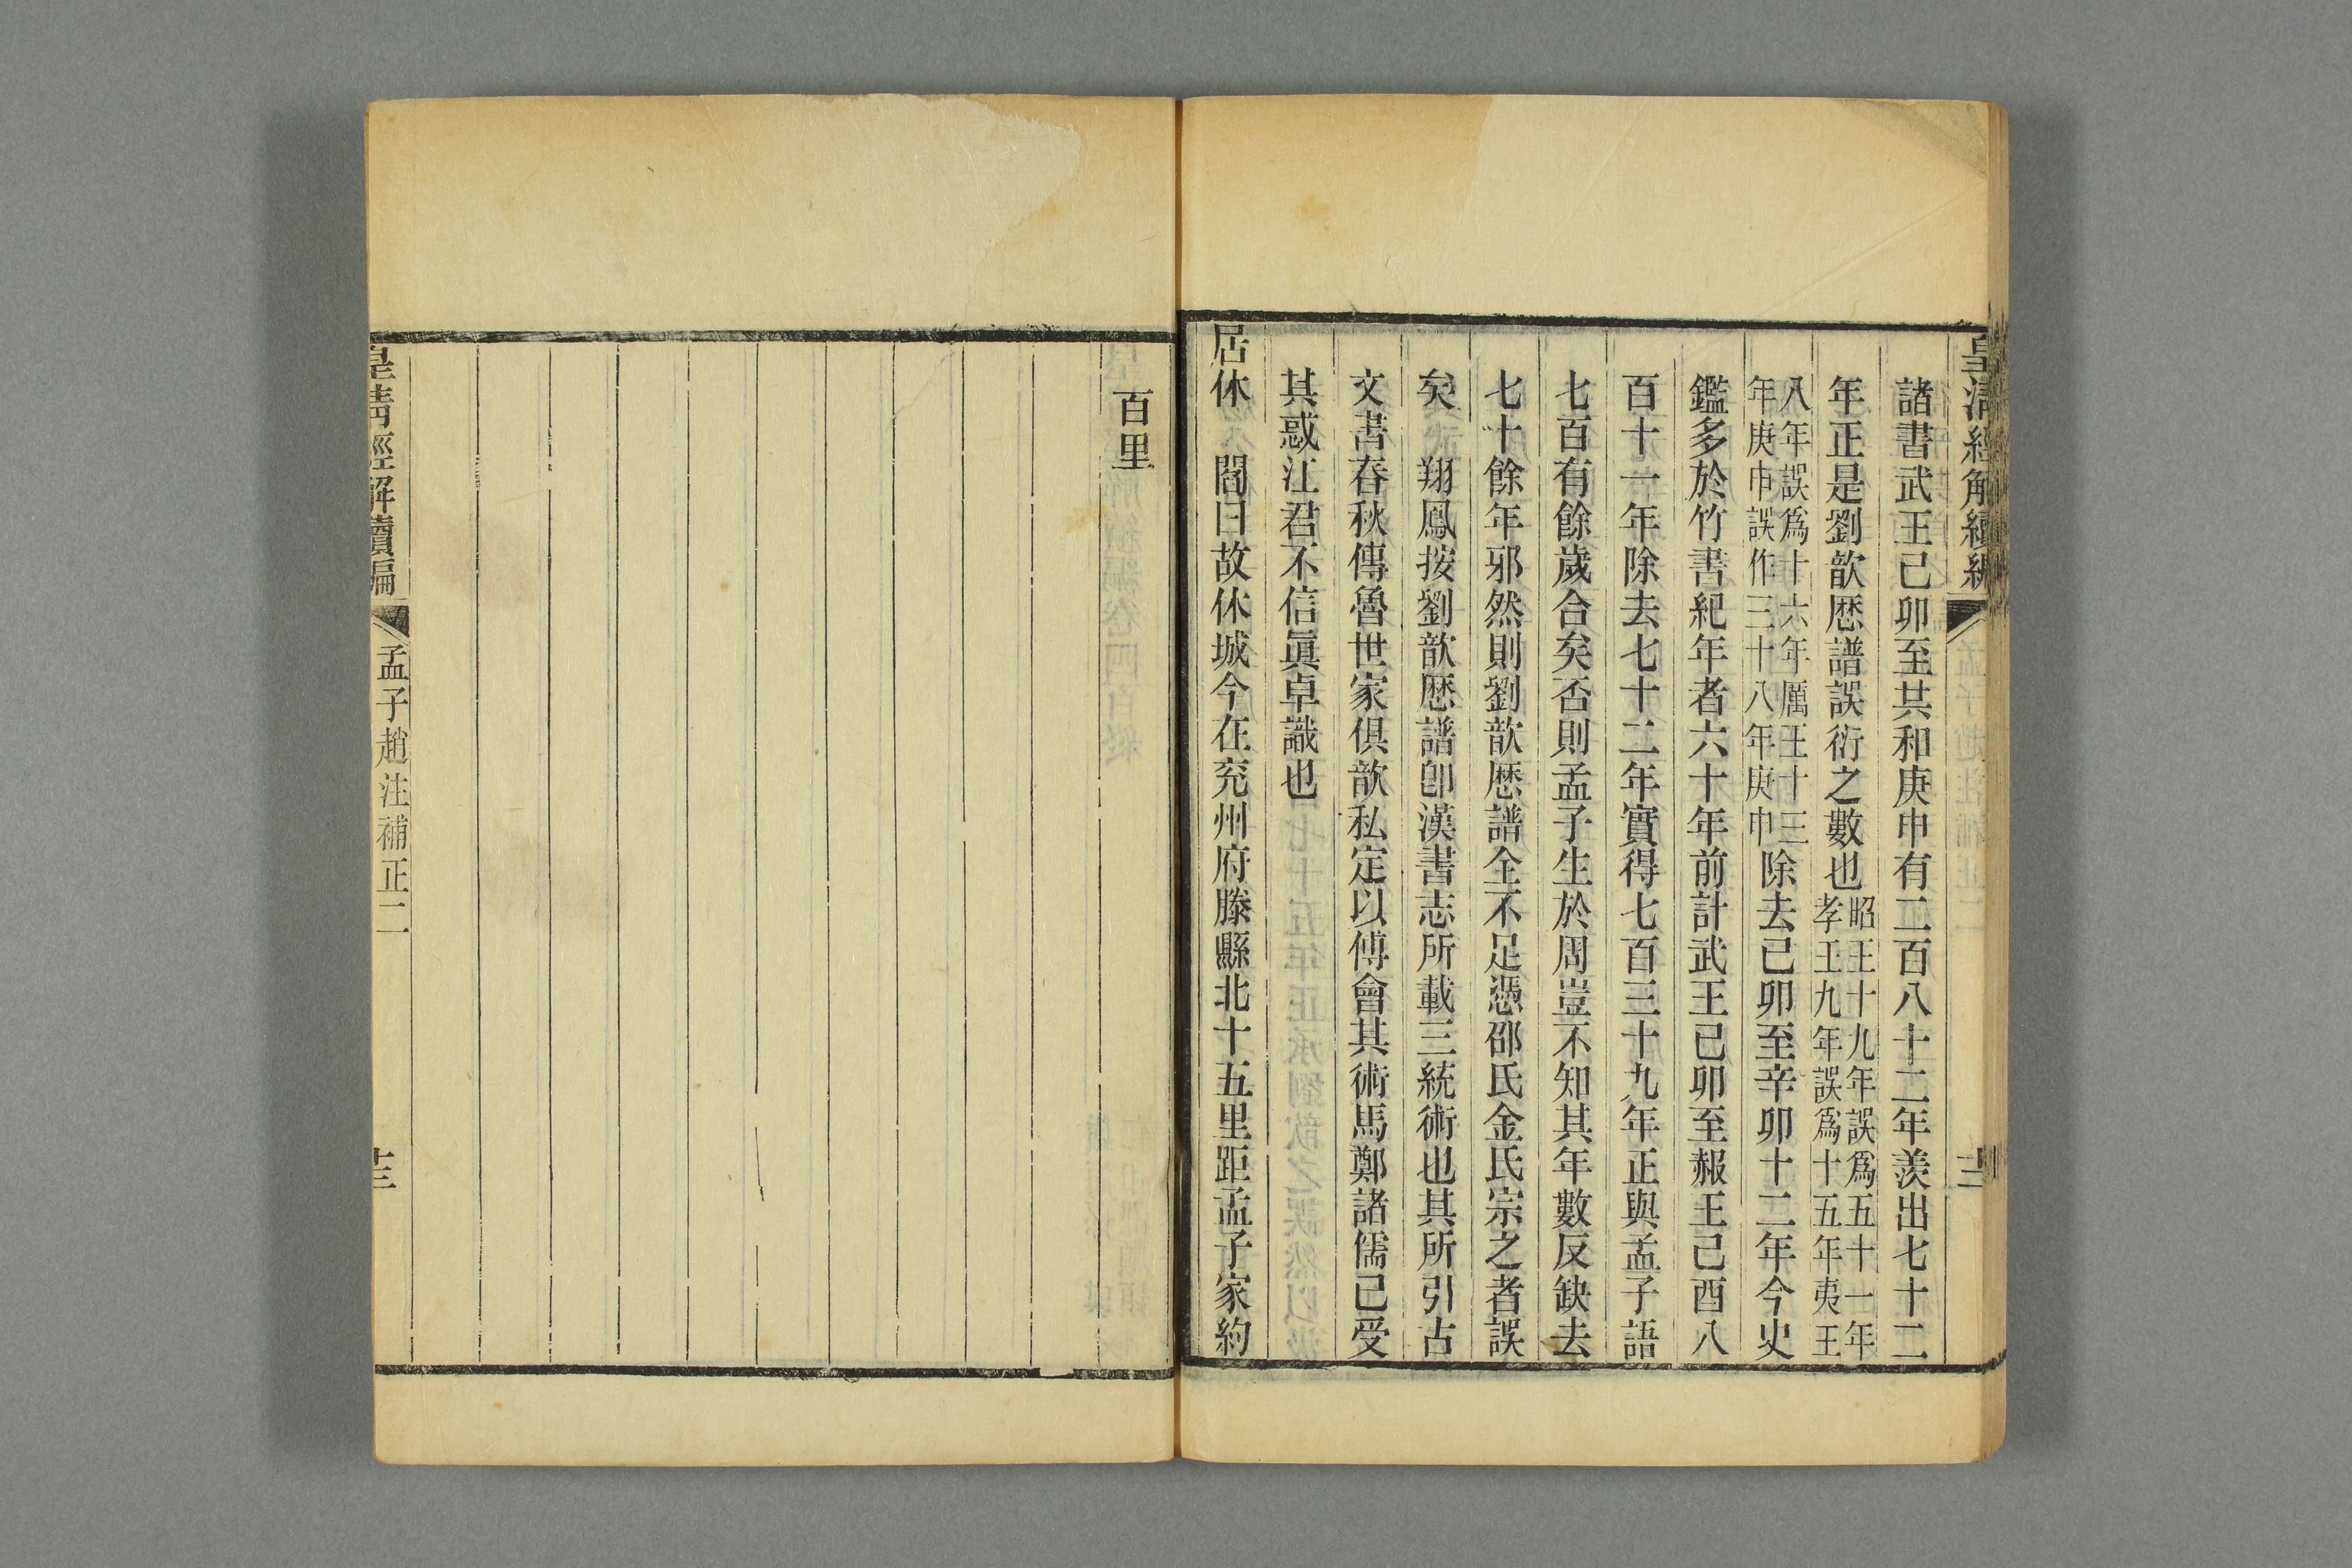 皇清經解續編
諸書武王己卯至共和庚申有二百八十二年羨出七十二
年正是劉歆厯譜誤衍之數也昭王十九年誤爲五十一年孝王九年誤爲十五年夷王
八年誤爲十六年厲王十三年庚申誤作三十八年庚申除去己卯至辛卯十二年今史
鑑多於竹書紀年者六十年前計武王己卯至赧王己酉八
百十一年除去七十二年實得七百三十九年正與孟子語
七百有餘歲合矣否則孟子生於周豈不知其年數反缺去
七十餘年邪然則劉歆厯譜全不足憑邵氏金氏宗之者誤
矣 翔鳳按劉歆厯譜卽漢書志所載三統術也其所引古
文書春秋傳魯世家俱歆私定以傅會其術馬鄭諸儒已受
其惑江君不信眞卓識也
居休 閻曰故休城今在兖州府滕縣北十五里距孟子家約
百里
皇清經解續編
孟子趙注補正二
十三